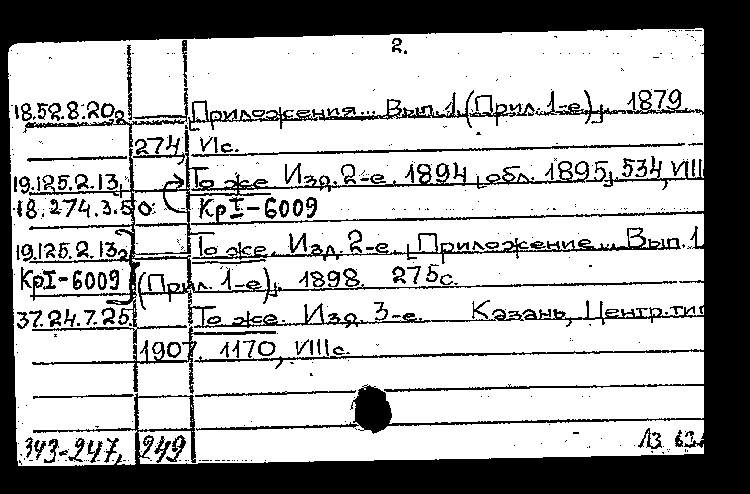 2.
18.52.8.20₂ [Приложения... Вып. 1. (Прил. 1-е)], 1879
274, VI с.
19.125.2.13₁ То же Изд. 2-е. 1894 [обл. 1895], 534, VIII
18.274.3.50 КрI-6009
19.125.2.13₂ То же. Изд. 2-е. [Приложение... Вып. 1
КрI-6009 (Прил. 1-е)], 1898. 275 с.
37.24.7.25 То же. Изд. 3-е. Казань, Центр. тип
1907. 1170, VIII с.
343-247, 249 ЛЗ 63